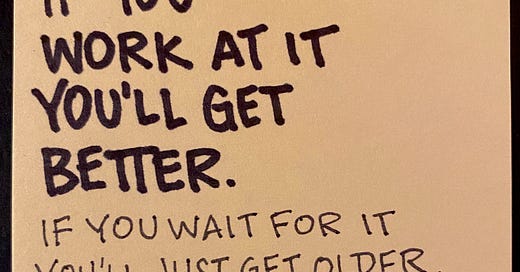 IF YOU
WORK AT IT
YOU'LL GET
BETTER.
IF YOU WAIT FOR IT
YOU'LL JUST GET OLDER.